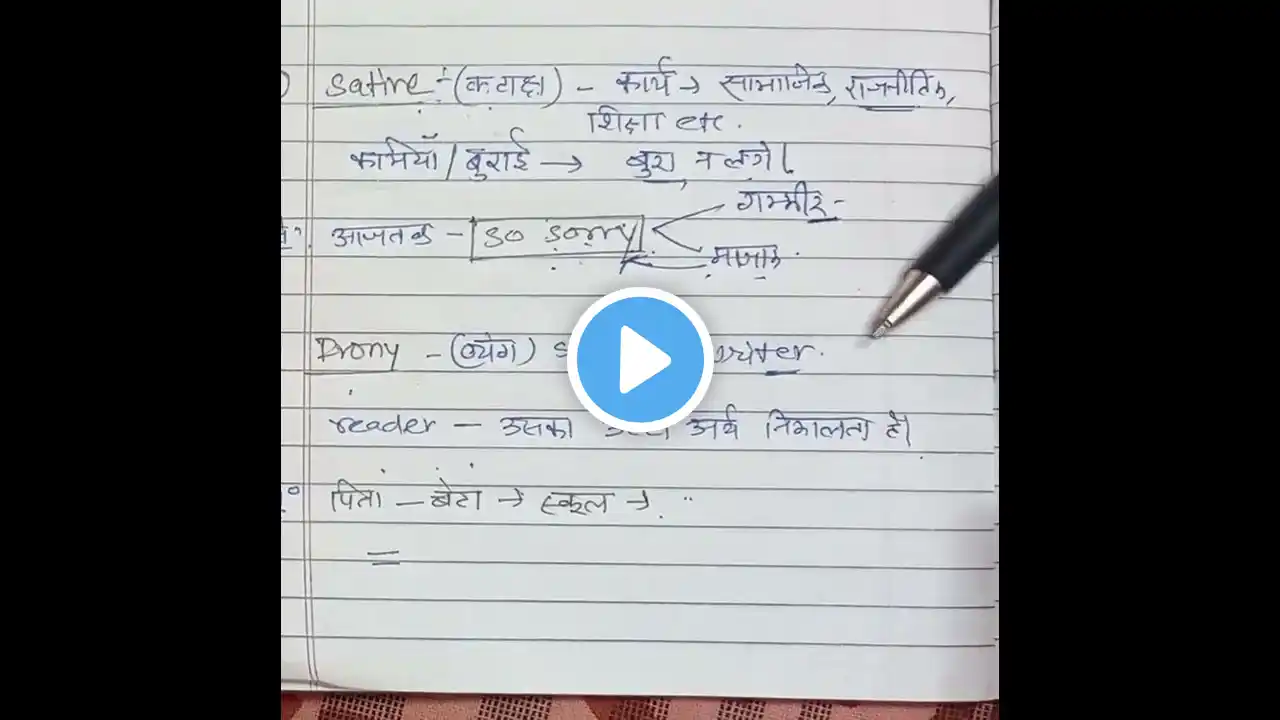 Satire :- (कटाक्ष) - कार्य → सामाजिक, राजनीतिक,
शिक्षा etc.
कमियाँ / बुराई → बुरा न लगे।
गम्भीर -
आजतक - so sorry
मजाक
Irony - (व्यंग) writer.
reader - उसका अर्थ निकालता है।
पिता - बेटा → स्कूल →